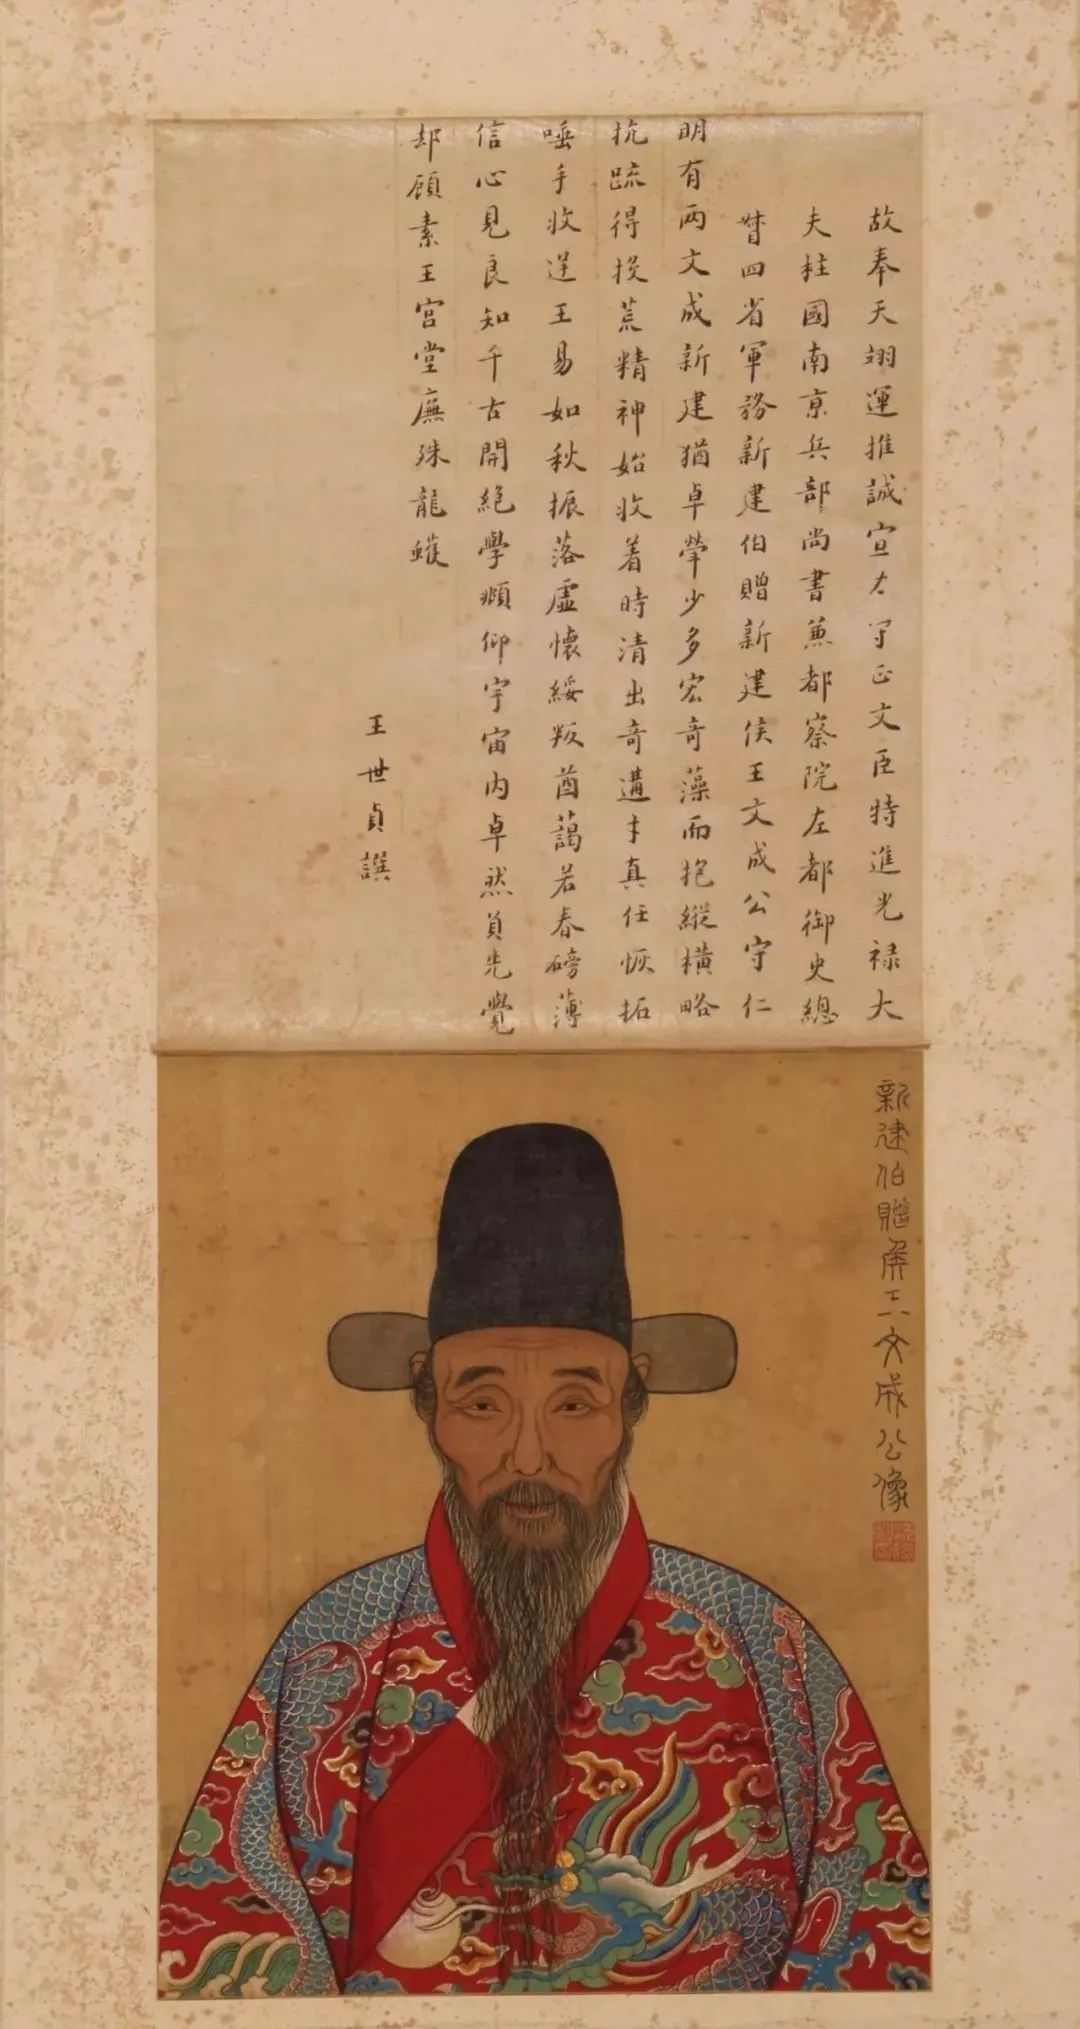 故奉天翊運推誠宣力守正文臣特進光禄大
夫柱國南京兵部尚書兼都察院左都御史總
督四省軍務新建伯贈新建侯王文成公守仁
明有两文成新建猶卓犖少多宏奇藻而抱縱横略
抗疏得投荒精神始收着時清出奇遘才真任恢拓
唾手收逆王易如秋振落虛懷綏叛酋藹若春磅薄
信心見良知千古開絕學頫仰宇宙内卓然負先覺
却顧素王宫堂廡殊龍蠖
王世貞譔
新建伯贈侯王文成公像